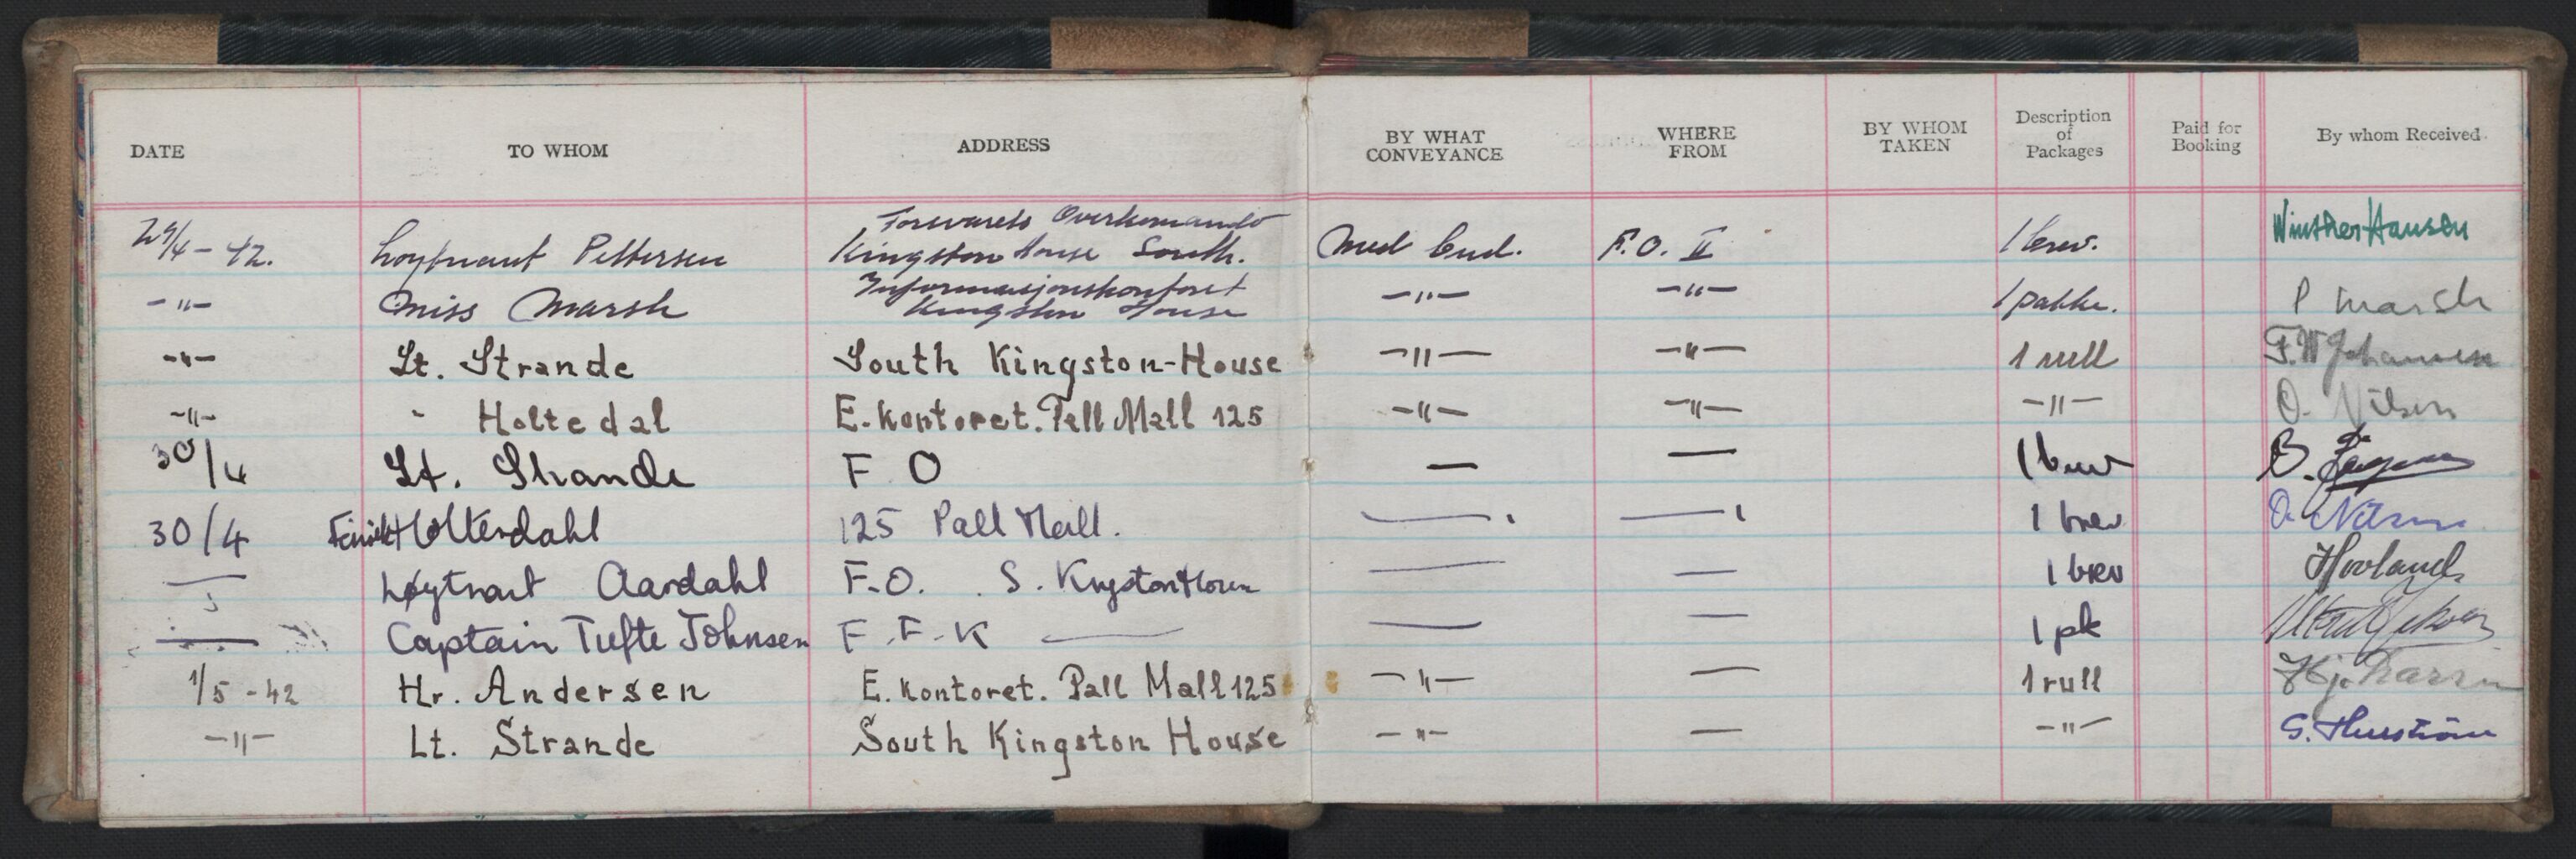 DATE TO WHOM ADDRESS BY WHAT CONVEYANCE WHERE FROM BY WHOM TAKEN Description of Packages Paid for Booking By whom Received
29/4-42. Løytnant Pettersen Forsvarets Overkomando Kingston House South. Med bud. F.O. II 1 brev. Winther Hansen
-"- Miss Marsh Informasjonskontoret Kingston House -"- -"- 1 pakke. P Marsh
-"- Lt. Strande South Kingston-House -"- -"- 1 rull F.W Johansen
-"- - Holtedal E. kontoret. Pall Mall 125 -"- -"- -"- O. Nilsen
30/4 Lt. Strande F O — — 1 brev B.
30/4 Holterdahl 125 Pall Mall. — — 1 brev O. Nilsen
— Løytnant Aardahl F.O. S. Kingston House — — 1 brev Hovland
— Captain Tufte Johnsen F.F.K — — — 1 pk
1/5-42 Hr. Andersen E. kontoret. Pall Mall 125 -"- — 1 rull
-"- Lt. Strande South Kingston House -"- — -"- G.